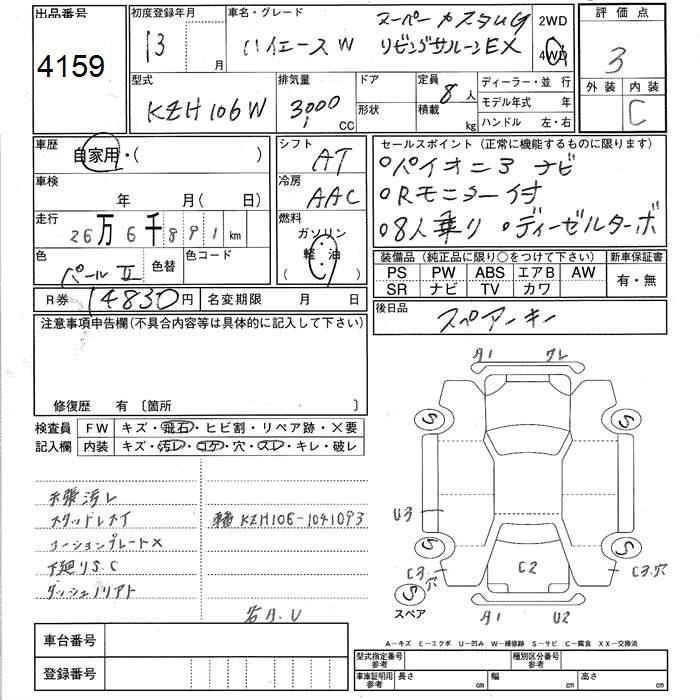 出品番号
4159
初度登録年月
13
月
車名・グレード
ハイエースW
スーパーカスタムG
リビングサルーンEX
2WD
4WD
評価点
3
外装 内装
C
型式
KZH106W
排気量
3,000
CC
ドア
形状
定員
8人
積載
kg
ディーラー・並 行
モデル年式 年
ハンドル 左・右
車歴
自家用・( )
車検
年 月( 日)
走行
26万6千891km
色
パールⅡ
色替
色コード
シフト
AT
冷房
AAC
燃料
ガソリン
軽油
( )
セールスポイント(正常に機能するものに限ります)
○パイオニアナビ
○Rモニター付
○8人乗り ○ディーゼルターボ
装備品(純正品に限り○をつけて下さい)
PS PW ABS エアB AW
SR ナビ TV カワ
新車保証書
有・無
R券 14830円 名変期限 月 日
後日品
スペアーキー
注意事項申告欄(不具合内容等は具体的に記入して下さい)
修復歴 有〔箇所 〕
検査員
記入欄
FW キズ・飛石・ヒビ割・リペア跡・×要
内装 キズ・汚レ・コゲ・穴・スレ・キレ・破レ
天張汚レ
コーションプレート×
下廻りS.C
車番 KZH106-1041093
タイ ワレ
S
S
U3
S
S
C3.穴
C2
C3.穴
S
スペア
タイ U2
A−キズ E−エクボ U−凹み W−補修跡 S−サビ C−腐食 XX−交換済
車台番号
登録番号
型式指定番号
参考
種別区分番号
参考
車庫証明用
参考
長さ cm
幅 cm
高さ cm